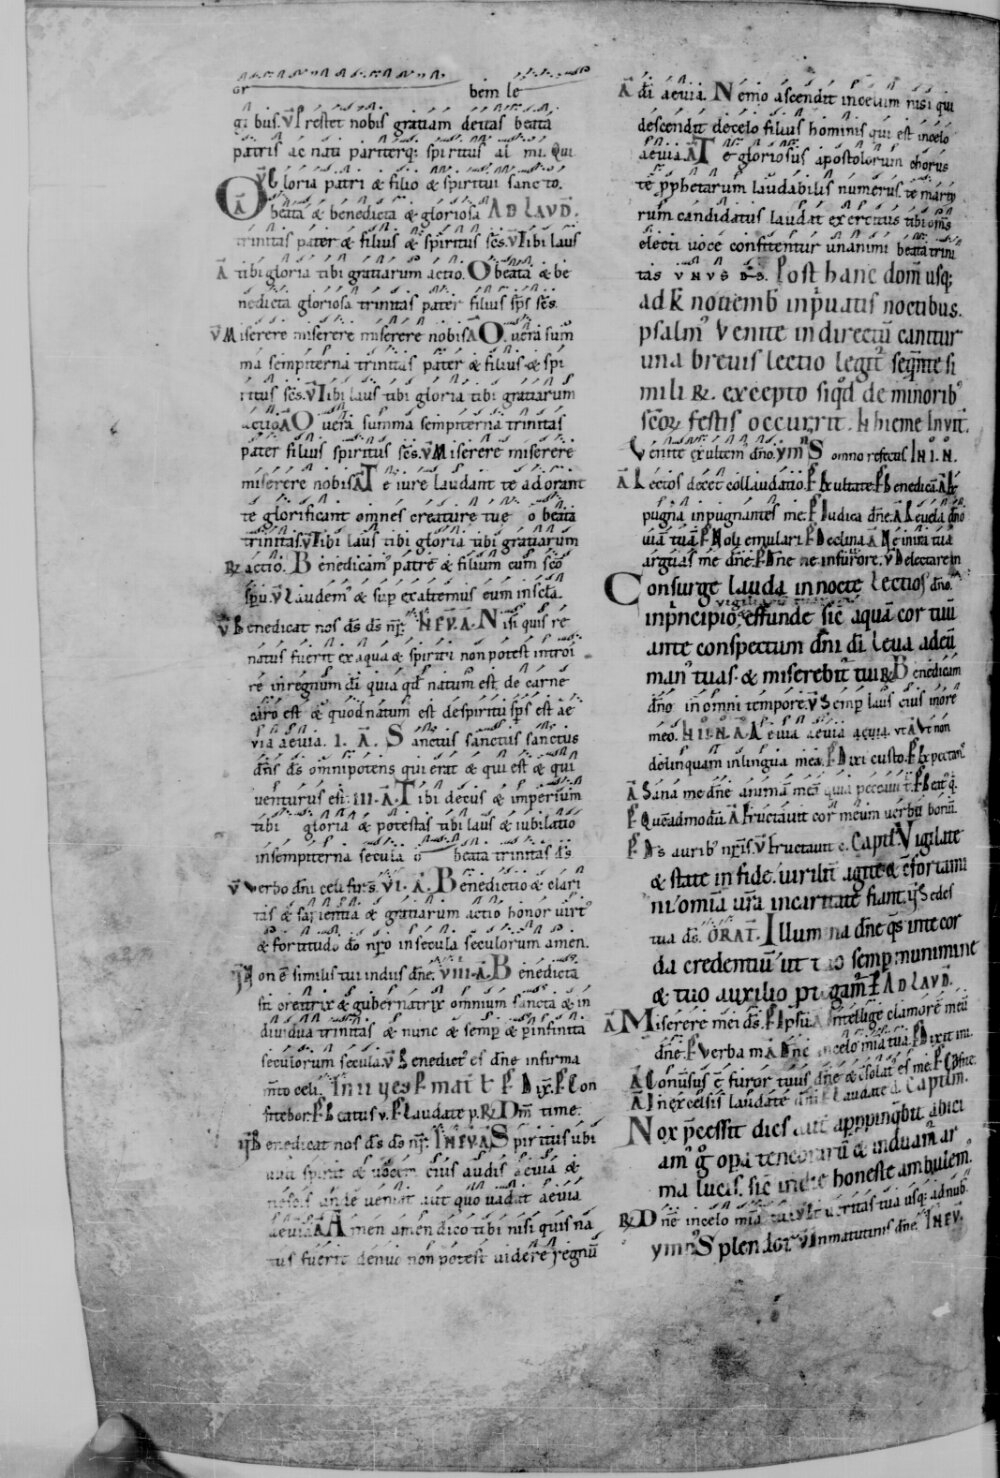 or bem le
gi bus. V Prestet nobis gratiam deitas beata
patris ac nati pariterq; spiritus al mi. Qui
V Gloria patri & filio & spiritui sancto.
A O beata & benedicta & gloriosa AD LAVD.
trinitas pater & filius & spiritus scs. V Tibi laus
A tibi gloria tibi gratiarum actio. O beata & be
nedicta gloriosa trinitas pater filius sps scs.
V Miserere miserere miserere nobis A O vera sum
ma sempiterna trinitas pater & filius & spi
ritus scs. V Tibi laus tibi gloria tibi gratiarum
actio A O vera summa sempiterna trinitas
pater filius spiritus scs. V Miserere miserere
miserere nobis A Te iure laudant te adorant
te glorificant omnes creature tue o beata
trinitas. V Tibi laus tibi gloria tibi gratiarum
R actio. Benedicam patre & filium cum sco
spu. V Laudem & sup exaltemus eum inscla.
V Benedicat nos ds ds nr. IN EV. A. Nisi quis re
natus fuerit ex aqua & spiritu non potest introi
re inregnum di quia qd natum est de carne
caro est & quod natum est despiritu sps est ae
via aevia. I. A. Sanctus sanctus sanctus
dns ds omnipotens qui erat & qui est & qui
venturus est. III. A. Tibi decus & imperium
tibi gloria & potestas tibi laus & iubilatio
insempiterna secula o beata trinitas ds
V Verbo dni celi fir s. VI. A. Benedictio & clari
tas & sapientia & gratiarum actio honor virt
& fortitudo do nro in secula seculorum amen.
Non e similis tui indiis dne. VIII. A. Benedicta
sit creatrix & gubernatrix omnium sancta & in
dividua trinitas & nunc & semp & pinfinita
seculorum secula. V Benedict es dne infirma
mto celi. In II
fitebor. P Beatus v. P Laudate p. R Dm time.
Benedicat nos ds do nr. IN EVA Spiritus ubi
vult spirat & vocem eius audis aevia &
nescis unde veniat aut quo vadit aevia
aevia A Amen amen dico tibi nisi quis na
tus fuerit denuo non potest videre regnu
A di aevia. Nemo ascendit incelum nisi qui
descendit decelo filius hominis qui est incelo
aevia. A Te gloriosus apostolorum chorus
te prophetarum laudabilis numerus te marty
rum candidatus laudat exercitus tibi oms
electi voce confitentur unanimi beata trini
tas VNVS DS. Post hanc dom usq;
ad K novemb inpuatis noctibus.
psalm Venite indirectu canitur
una brevis lectio legit seqnte si
mili R. excepto siqd de minorib
scor festis occurrit. In hieme Invit.
Venite exultem dno. Ymn Somno refectus IN I. N.
A Rectos decet collaudatio. P Exultate. P Benedica A Ex
pugna inpugnantes me. P Iudica dne. A Revela dno
via tua. P Noli emulari. P Declina A
arguas me dne. P Dne ne infurore. V Delectare in
Consurge lauda in nocte Lectio dno.
inprincipio vigiliarum effunde sic aqua cor tuu
ante conspectum dni di Leva adeu
man tuas. & miserebit tui R Benedicam
dno in omni tempore. V Semp laus eius inore
meo. IN II. N. A. Aevia aevia aevia. A Ut non
delinquam in lingua mea. P Dixi custo. P Expectans
A Sana me dne anima mea quia peccavi t. P
P Queadmodu A Eructavit cor meum verbu bonu.
P Ds aurib nris. V Eructavit c. Capitl. Vigilate
& state in fide. virilit agite & confortami
ni. omia vra incaritate fiant. Sedes
tua ds. ORAT. Illumina dne qs inte cor
da credentiu ut tuo semp munimine
& tuo auxilio ptegam AD LAVD.
A Miserere mei ds. P Ipsu. A Intellige clamore meu
dne. P Verba m A Dne incelo mia tua. P Dixit ini.
A Conversus e furor tuus dne & csolat es me. P Confite
A Inexcelsis laudate dm P Laudate d. Capitlm.
Nox pcessit dies aut appinqbit abici
am g opa tenebraru & induam ar
ma lucis. sic in die honeste ambulem.
R Dne incelo mia tua V Et veritas tua usq; adnub
Ymn Splendor V Inmatutinis dne. IN EV.